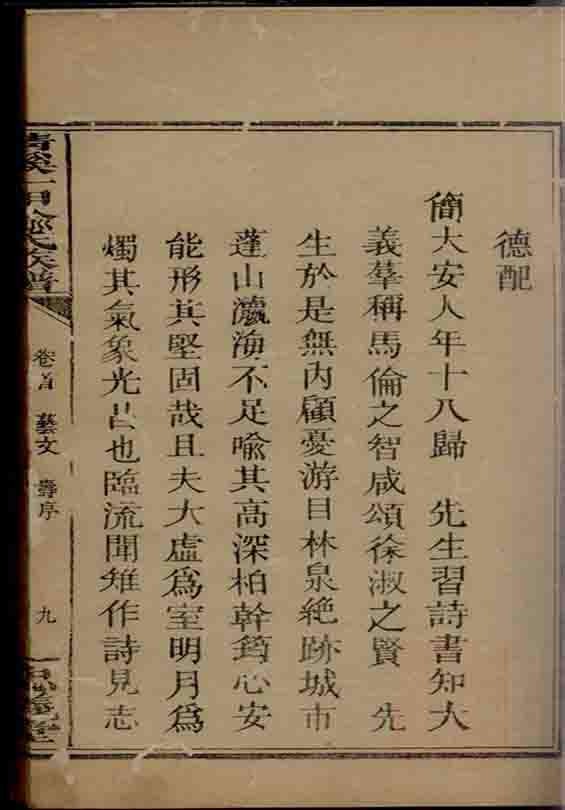 德配
簡大安人年十八歸　先生習詩書知大
義羣稱馬倫之智咸頌徐淑之賢　先
生於是無內顧憂游目林泉絶跡城市
蓬山瀛海不足喻其高深柏幹筠心安
能形其堅固哉且夫大虛爲室明月爲
燭其氣象光昌也臨流聞雉作詩見志
氏族譜
卷首　藝文　壽序　九